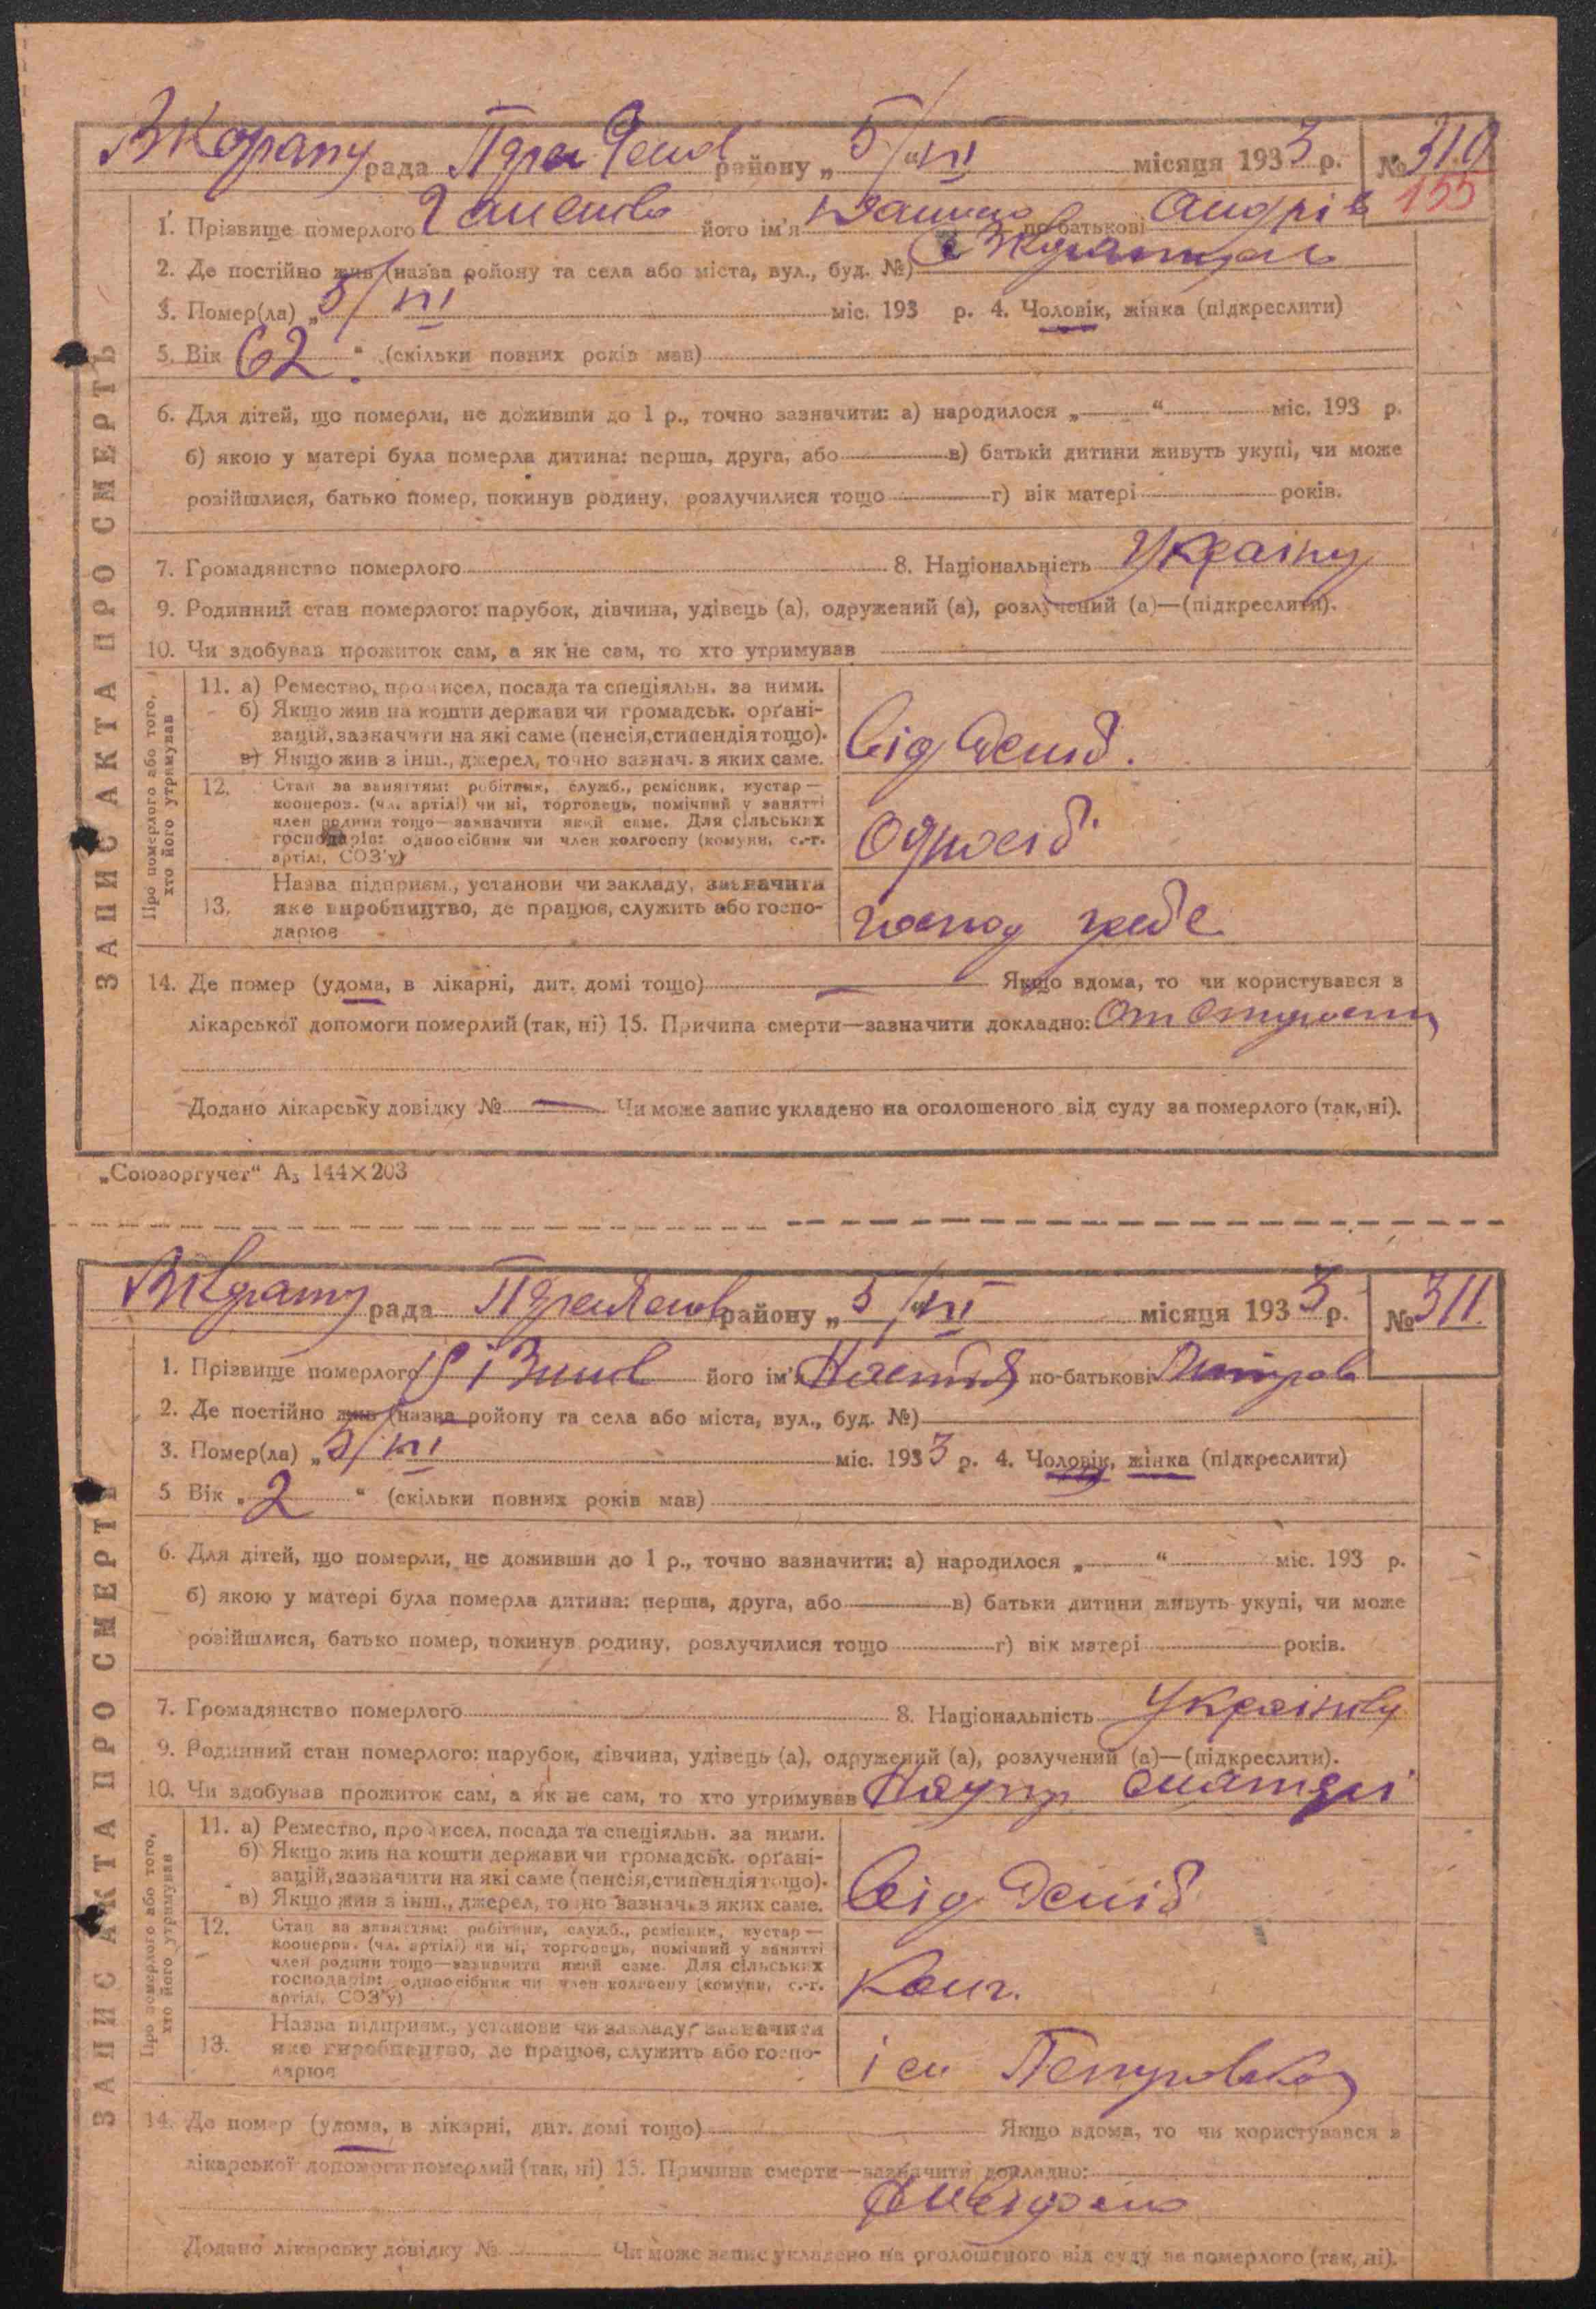 рада району „5/VI місяця 1933 р. № 310
155
1. Прізвище померлого його ім'я по батькові Андрів
2. Де постійно жив (назва ройону та села або міста, вул., буд. №)
3. Помер(ла) „5/VI міс. 193 р. 4. Чоловік, жінка (підкреслити)
5. Вік 62 “ (скільки повних років мав)
6. Для дітей, що померли, не доживши до 1 р., точно зазначити: а) народилося „ “ міс. 193 р.
б) якою у матері була померла дитина: перша, друга, або в) батьки дитини живуть укупі, чи може
розійшлися, батько помер, покинув родину, розлучилися тощо г) вік матері років.
7. Громадянство померлого 8. Національність Україну
9. Родинний стан померлого: парубок, дівчина, удівець (а), одружений (а), розлучений (а)—(підкреслити).
10. Чи здобував прожиток сам, а як не сам, то хто утримував
11. а) Ремество, промисел, посада та спеціяльн. за ними.
б) Якщо жив на кошти держави чи громадськ. органі-
зацій, зазначити на які саме (пенсія, стипендія тощо).
в) Якщо жив з інш., джерел, точно зазнач. з яких саме.
від
12. Стан за заняттям: робітник, служб., ремісник, кустар—
кооперов. (чл. артілі) чи ні, торговець, помічний у занятті
член родини тощо—зазначити який саме. Для сільських
господарів: одноосібник чи член колгоспу (комуни, с.-г.
артілі, СОЗ'у)
Одноосіб
13. Назва підприєм., установи чи закладу, зазначити
яке виробництво, де працює, служить або госпо-
дарює
господ
ЗАПИС АКТА ПРО СМЕРТЬ
Про померлого або того,
хто його утримував
14. Де помер (удома, в лікарні, дит. домі тощо) Якщо вдома, то чи користувався з
лікарської допомоги померлий (так, ні) 15. Причина смерти—зазначити докладно: От старости
Додано лікарську довідку № — Чи може запис укладено на оголошеного від суду за померлого (так, ні).
„Союзоргучет“ А₅ 144×203
рада району „5/VI місяця 1933 р. № 311.
1. Прізвище померлого його ім'я Настя по-батькові
2. Де постійно жив (назва ройону та села або міста, вул., буд. №)
3. Помер(ла) „5/VI міс. 1933 р. 4. Чоловік, жінка (підкреслити)
5 Вік „2 “ (скільки повних років мав)
6. Для дітей, що померли, не доживши до 1 р., точно зазначити: а) народилося „ “ міс. 193 р.
б) якою у матері була померла дитина: перша, друга, або в) батьки дитини живуть укупі, чи може
розійшлися, батько помер, покинув родину, розлучилися тощо г) вік матері років.
7. Громадянство померлого 8. Національність
9. Родинний стан померлого: парубок, дівчина, удівець (а), одружений (а), розлучений (а)—(підкреслити).
10. Чи здобував прожиток сам, а як не сам, то хто утримував матері
11. а) Ремество, промисел, посада та спеціяльн. за ними.
б) Якщо жив на кошти держави чи громадськ. органі-
зацій, зазначити на які саме (пенсія, стипендія тощо).
в) Якщо жив з інш., джерел, точно зазнач. з яких саме.
від
12. Стан за заняттям: робітник, служб., ремісник, кустар—
кооперов. (чл. артілі) чи ні, торговець, помічний у занятті
член родини тощо—зазначити який саме. Для сільських
господарів: одноосібник чи член колгоспу (комуни, с.-г.
артілі, СОЗ'у)
Колг.
13. Назва підприєм., установи чи закладу, зазначити
яке виробництво, де працює, служить або госпо-
дарює
ім Петровськ
ЗАПИС АКТА ПРО СМЕРТЬ
Про померлого або того,
хто його утримував
14. Де помер (удома, в лікарні, дит. домі тощо) Якщо вдома, то чи користувався з
лікарської допомоги померлий (так, ні) 15. Причина смерти—зазначити докладно:
Додано лікарську довідку № Чи може запис укладено на оголошеного від суду за померлого (так, ні).